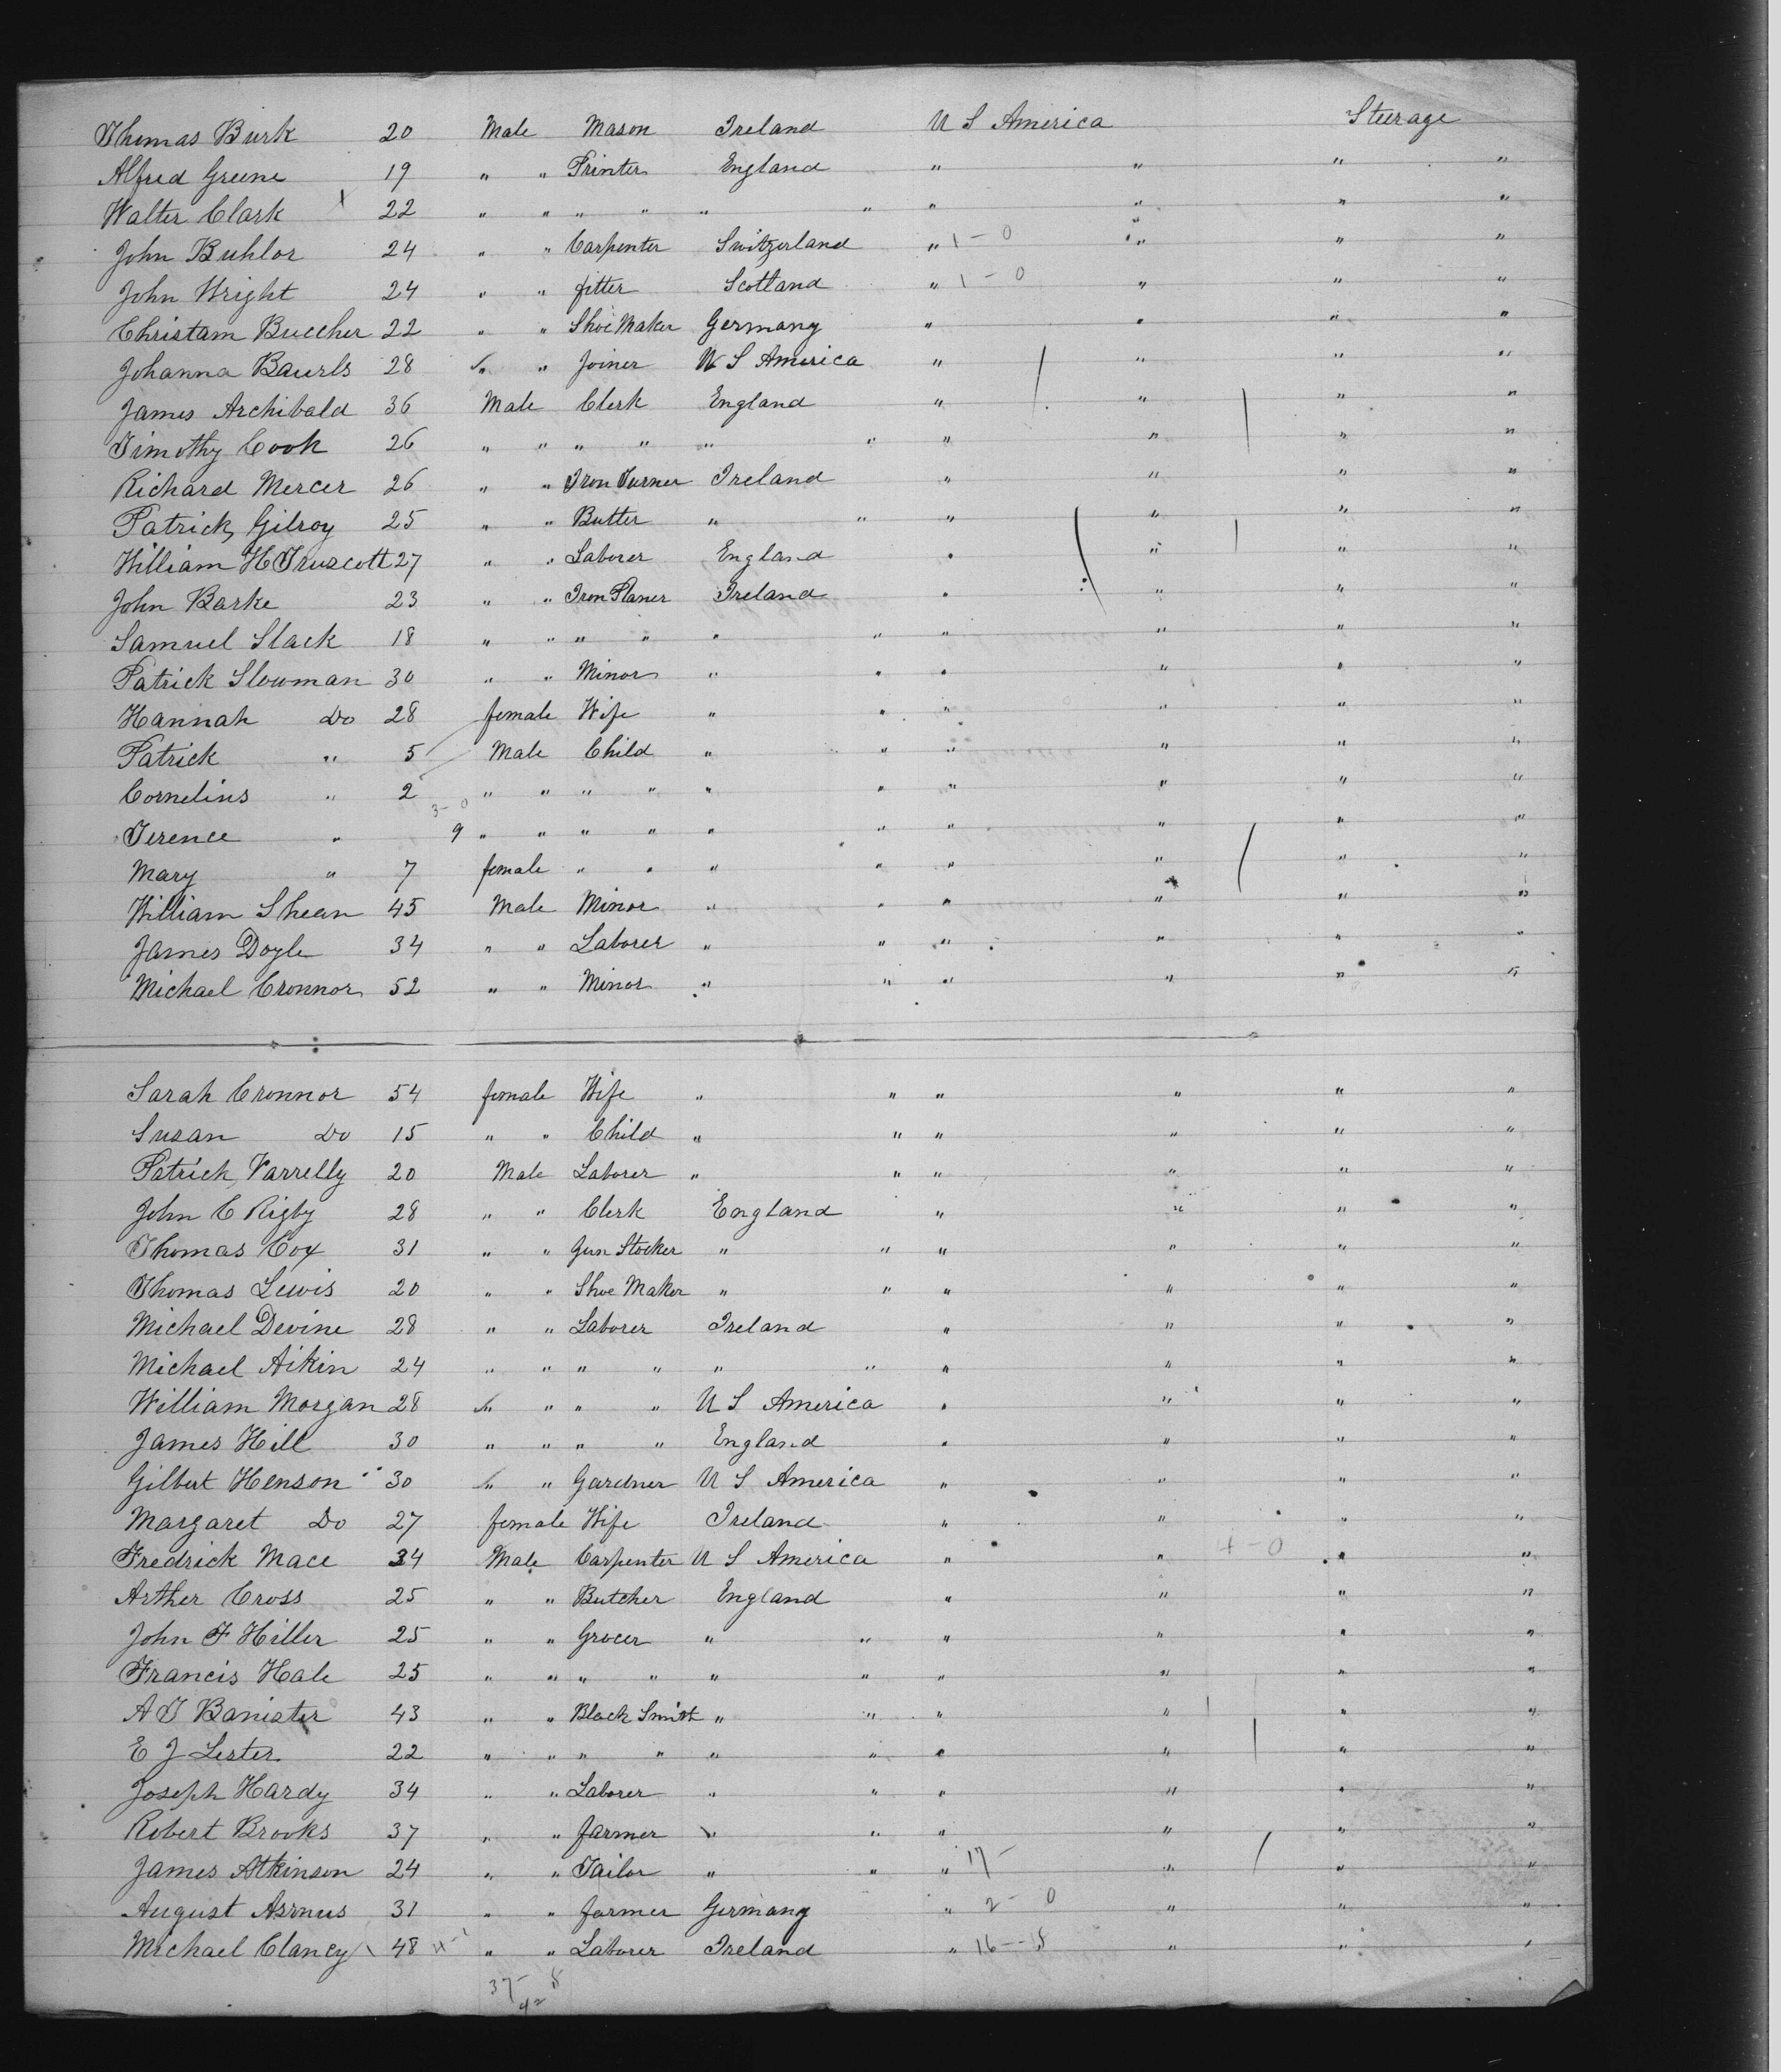 Thomas Burk 20 Male Mason Ireland U S America Steerage
Alfred Greene 19 " " Printer England " " " "
Walter Clark 22 " " " " " " " " " "
John Buhlor 24 " " Carpenter Switzerland " 1 - 0 " " "
John Wright 24 " " fitter Scotland " 1 - 0 " " "
Christam Buccher 22 " " Shoe Maker Germany " " " "
Johanna Baurls 28 " " Joiner U S America " " " "
James Archibald 36 Male Clerk England " " " "
Timothy Cook 26 " " " " " " " " " "
Richard Mercer 26 " " Iron Turner Ireland " " " "
Patrick Gilroy 25 " " Butler " " " " " "
William H Truscott 27 " " Laborer England " " " "
John Barke 23 " " Iron Planer Ireland " " " "
Samuel Slack 18 " " " " " " " " " "
Patrick Slowman 30 " " Minor " " " " " "
Hannah Do 28 female Wife " " " " " "
Patrick " 5 Male Child " " " " " "
Cornelius " 2 " " " " " " " " " "
Terence " 3 - 0 9 " " " " " " " " " "
Mary " 7 female " " " " " " " "
William Shean 45 Male Minor " " " " " "
James Doyle 34 " " Laborer " " " " " "
Michael Cronnor 52 " " Minor " " " " " "
Sarah Cronnor 54 female Wife " " " " " "
Susan Do 15 " " Child " " " " " "
Patrick Varrelly 20 Male Laborer " " " " " "
John C Rigby 28 " " Clerk England " " " "
Thomas Cox 31 " " Gun Stocker " " " " " "
Thomas Lewis 20 " " Shoe Maker " " " " " "
Michael Devine 28 " " Laborer Ireland " " " "
Michael Aikin 24 " " " " " " " " " "
William Morgan 28 " " " " U S America " " " "
James Hill 30 " " " " England " " " "
Gilbert Henson 30 " " Gardner U S America " " " "
Margaret Do 27 female Wife Ireland " " " "
Fredrick Mace 34 Male Carpenter U S America " " 4 - 0 " "
Arther Cross 25 " " Butcher England " " " "
John F Hiller 25 " " Grocer " " " " " "
Francis Hale 25 " " " " " " " " " "
A T Banister 43 " " Black Smith " " " " " "
E J Lester 22 " " " " " " " " " "
Joseph Hardy 34 " " Laborer " " " " " "
Robert Brooks 37 " " farmer " " " " " "
James Atkinson 24 " " Tailor " " " 17 - " " "
August Asmus 31 " " farmer Germany " 2 - 0 " " "
Michael Clancy 48 " " Laborer Ireland " 16 - 8 " " "
37 - 8
42